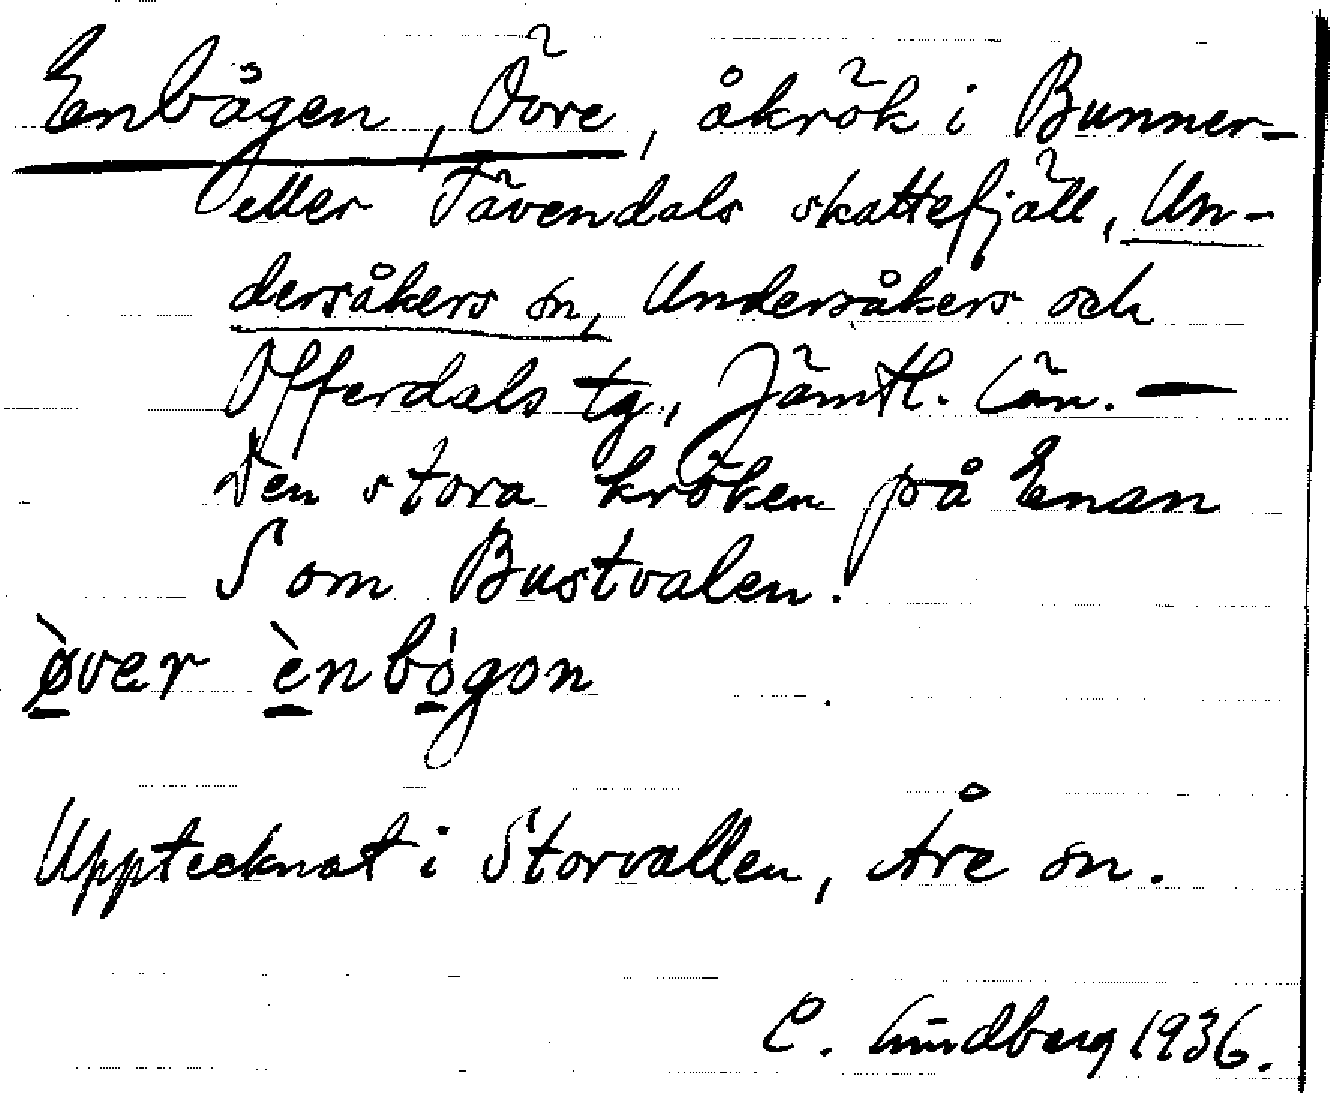 Enbågen, Övre, åkrök i Bunner-
eller Tävendals skattefjäll, Un-
dersåkers sn, Undersåkers och
Offerdals tg, Jämtl. län. —
Den stora kröken på Enan
S om Bustvalen.
ø̀ver ènbógon
Upptecknat i Storvallen, Åre sn.
C. Lindberg 1936.